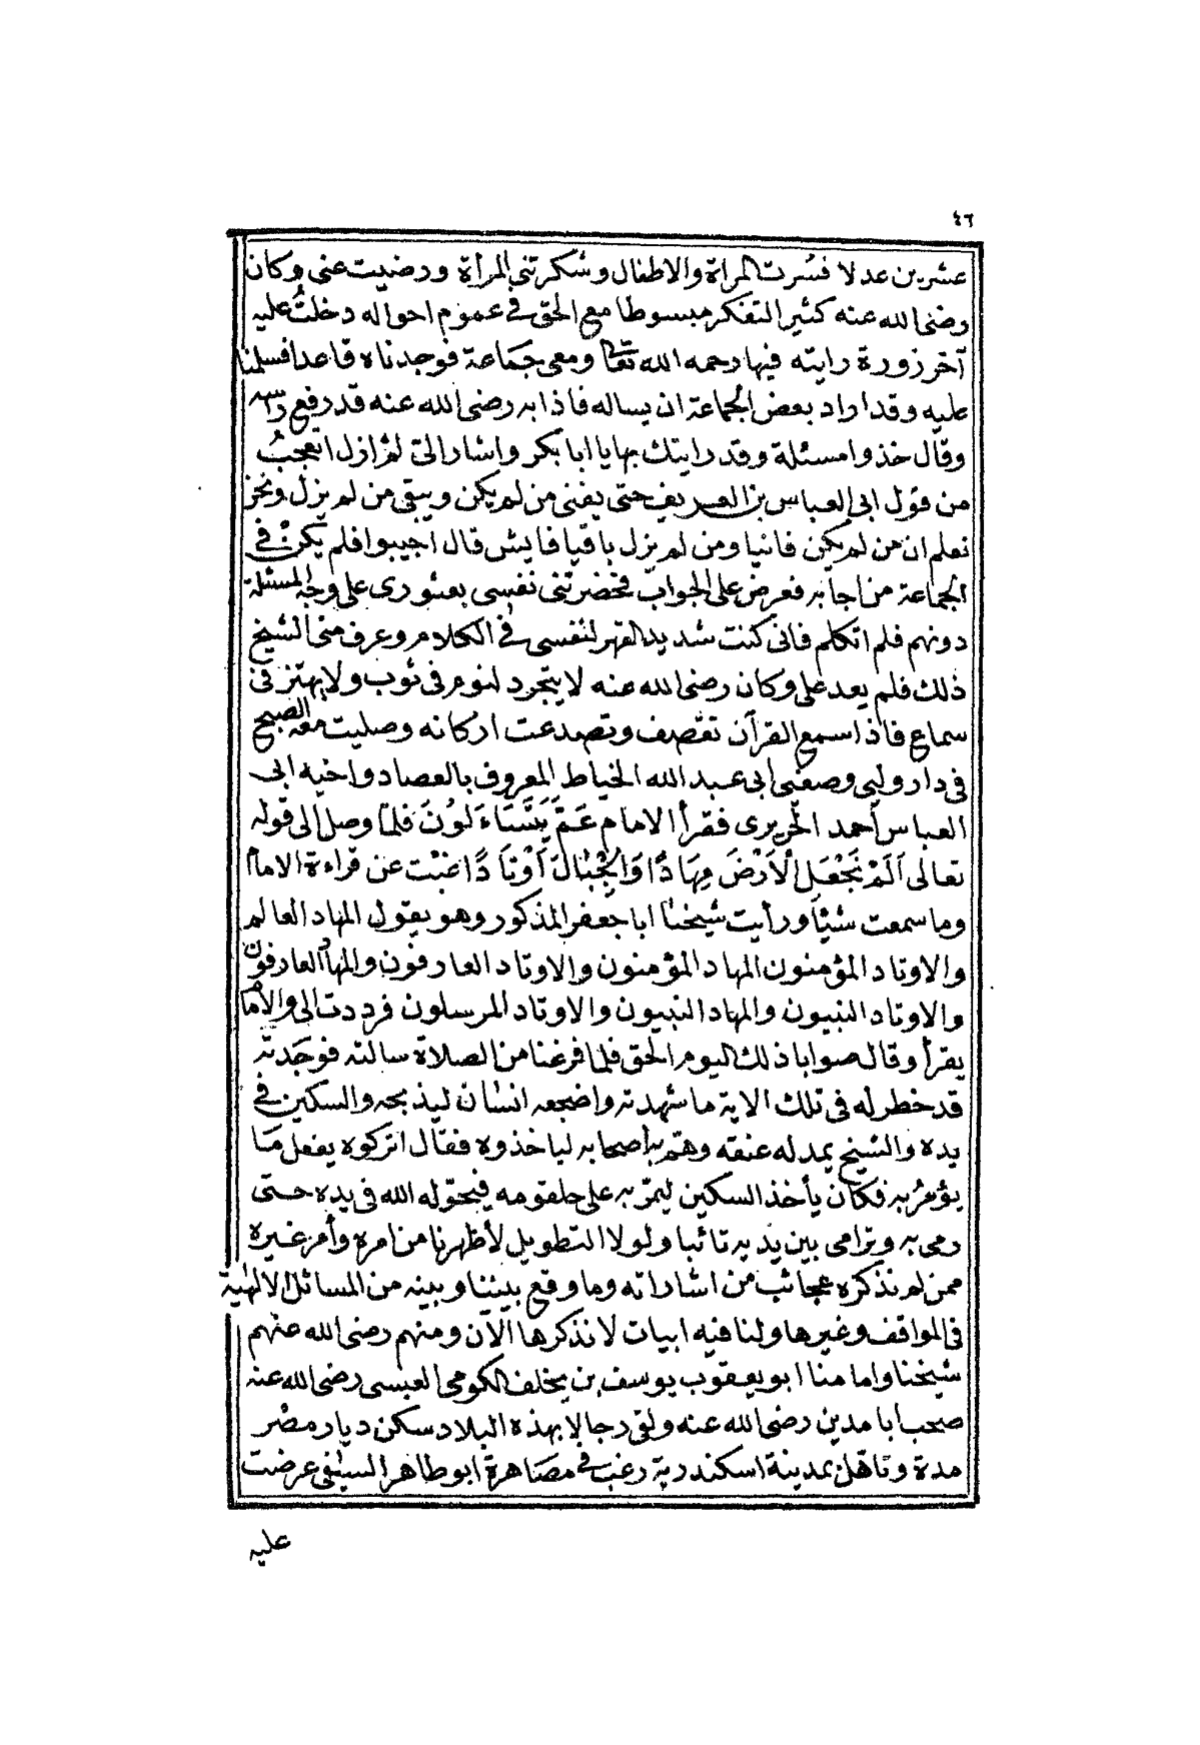 ٤٦
عشرين عدلا فسُرت المراة والاطفال وشكرتني المرأة ورضيت عنى وكان
رضى الله عنه كثير التفكر مبسوطا مع الحق في عموم احواله دخلتُ عليه
آخر زورة رايته فيها رحمه الله تعالى ومعى جَماعة فوجدناه قاعدا فسلمنا
عليه وقد اراد بعض الجماعة ان يساله فاذا به رضى الله عنه قد رفع راسه
وقال خذوا مسئلة وقد رايتك بها يا ابا بكر واشار الىّ لم ازل اتعجبُ
من قول ابى العباس بن العريف حتى يفنى من لم يكن ويبقى من لم يزل ونحن
نعلم ان من لم يكن فانيا ومن لم يزل باقيا فايش قال اجيبوا فلم يكن في
الجماعة من اجابه فعرض على الجواب فحضرتنى نفسى بعثورى على وجه المسئلة
دونهم فلم اتكلم فانى كنت شديد القهر لنفسى في الكلام وعرف منى الشيخ
ذلك فلم يعد على وكان رضى الله عنه لا يتجرد لنوم فى ثوب ولا يهتز فى
سماع فاذا سمع القرآن تقصف وتصدعت اركانه وصليت معه الصبح
فى دار وليى وصفيى ابى عبد الله الخياط المعروف بالعصاد واخيه ابى
العباس أحمد الحريرى فقرأ الامام عَمَّ يَتَسَاءَلُونَ فلمّا وصل الى قوله
تعالى اَلَمْ نَجْعَلِ الْاَرْضَ مِهَادًا وَالْجِبَالَ اَوْتَادًا غبْت عن قراءة الامام
وما سمعت شيْأ ورأيت شيخنا ابا جعفر المذكور وهو يقول المهاد العالم
والاوتاد المؤمنون المهاد المؤمنون والاوتاد العارفون والمهاد العارفون
والاوتاد النبيون والمهاد النبيون والاوتاد المرسلون فرددت الى والامام
يقرأ وقال صوابا ذلك اليوم الحق فلما فرغنا من الصلاة سالته فوجَدته
قد خطر له فى تلك الاية ما شهدته واضجعه انسان ليذبحه والسكين في
يده والشيخ يمد له عنقه وهمّ به أصحابه لياخذوه فقال اتركوه يفعل مَا
يؤمرُ به فكان يأخذ السكين ليمرّ به على حلقومه فيحوّله الله فى يده حتى
رمى به وترامى بين يديه تائبا ولولا التطويل لأظهرنا من امره وأمر غيره
ممن لم نذكره عجائب من اشاراته وما وقع بيننا وبينه من المسائل الالهية
فى المواقف وغيرها ولنا فيه ابيات لا نذكرها الآن ومنهم رضى الله عنهم
شيخنا وامامنا ابو يعقوب يوسف بن يخلف الكومى العبسى رضى الله عنه
صحب ابا مدين رضى الله عنه ولقى رجالا بهذه البلاد سكن ديار مصْر
مدة وتاهل بمدينة اسكندرية رغب في مصَاهرة ابو طاهر السيلفى عرضت
عليه